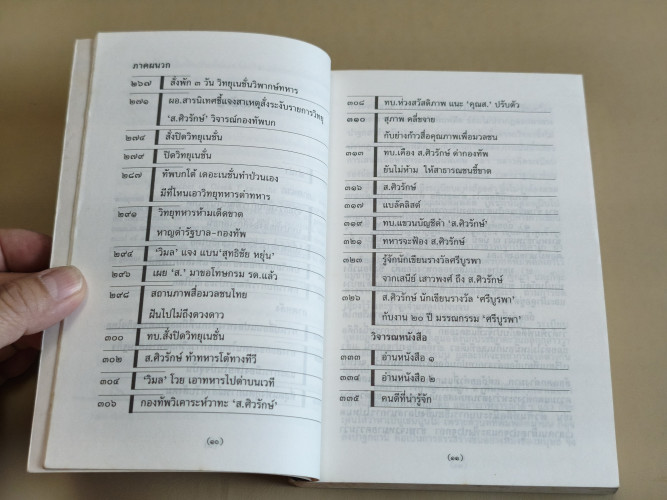 ภาคผนวก
๒๖๗ สั่งพัก ๓ วัน วิทยุเนชั่นวิพากษ์ทหาร
๒๗๑ ผอ.สารนิเทศชี้แจงสาเหตุสั่งระงับรายการวิทยุ
'ส.ศิวรักษ์' วิจารณ์กองทัพบก
๒๗๔ สั่งปิดวิทยุเนชั่น
๒๗๙ ปิดวิทยุเนชั่น
๒๘๗ ทัพบกโต้ เดอะเนชั่นทำป่วนเอง
มีที่ไหนเอาวิทยุทหารด่าทหาร
๒๙๑ วิทยุทหารห้ามเด็ดขาด
หาญด่ารัฐบาล-กองทัพ
๒๙๔ 'วิมล' แจง แบน'สุทธิชัย หยุ่น'
๒๙๖ เผย 'ส.' มาขอโทษกรม รด.แล้ว
๒๙๘ สถานภาพสื่อมวลชนไทย
ฝันไปไม่ถึงดวงดาว
๓๐๐ ทบ.สั่งปิดวิทยุเนชั่น
๓๐๒ ส.ศิวรักษ์ ท้าทหารโต้ทางทีวี
๓๐๔ 'วิมล' โวย เอาทหารไปด่าบนเวที
๓๐๖ กองทัพวิเคราะห์วาทะ 'ส.ศิวรักษ์'
(๑๐)
๓๐๘ ทบ.ห่วงสวัสดิภาพ แนะ 'คุณส.' ปรับตัว
๓๑๐ สุภาพ คลี่ขจาย
กับย่างก้าวสื่อคุณภาพเพื่อมวลชน
๓๑๓ ทบ.เคือง ส.ศิวรักษ์ ด่ากองทัพ
ยันไม่ห้าม ให้สาธารณชนชี้ขาด
๓๑๖ ส.ศิวรักษ์
๓๑๗ แบล๊คลิสต์
๓๑๙ ทบ.แขวนบัญชีดำ 'ส.ศิวรักษ์'
๓๒๑ ทหารจะฟ้อง ส.ศิวรักษ์
๓๒๓ รู้จักนักเขียนรางวัลศรีบูรพา
จากเสนีย์ เสาวพงศ์ ถึง ส.ศิวรักษ์
๓๒๖ ส.ศิวรักษ์ นักเขียนรางวัล 'ศรีบูรพา'
กับงาน ๒๐ ปี มรรณกรรม 'ศรีบูรพา'
วิจารณหนังสือ
๓๓๓ อ่านหนังสือ ๑
๓๓๔ อ่านหนังสือ ๒
๓๓๕ คนดีที่น่ารู้จัก
(๑๑)